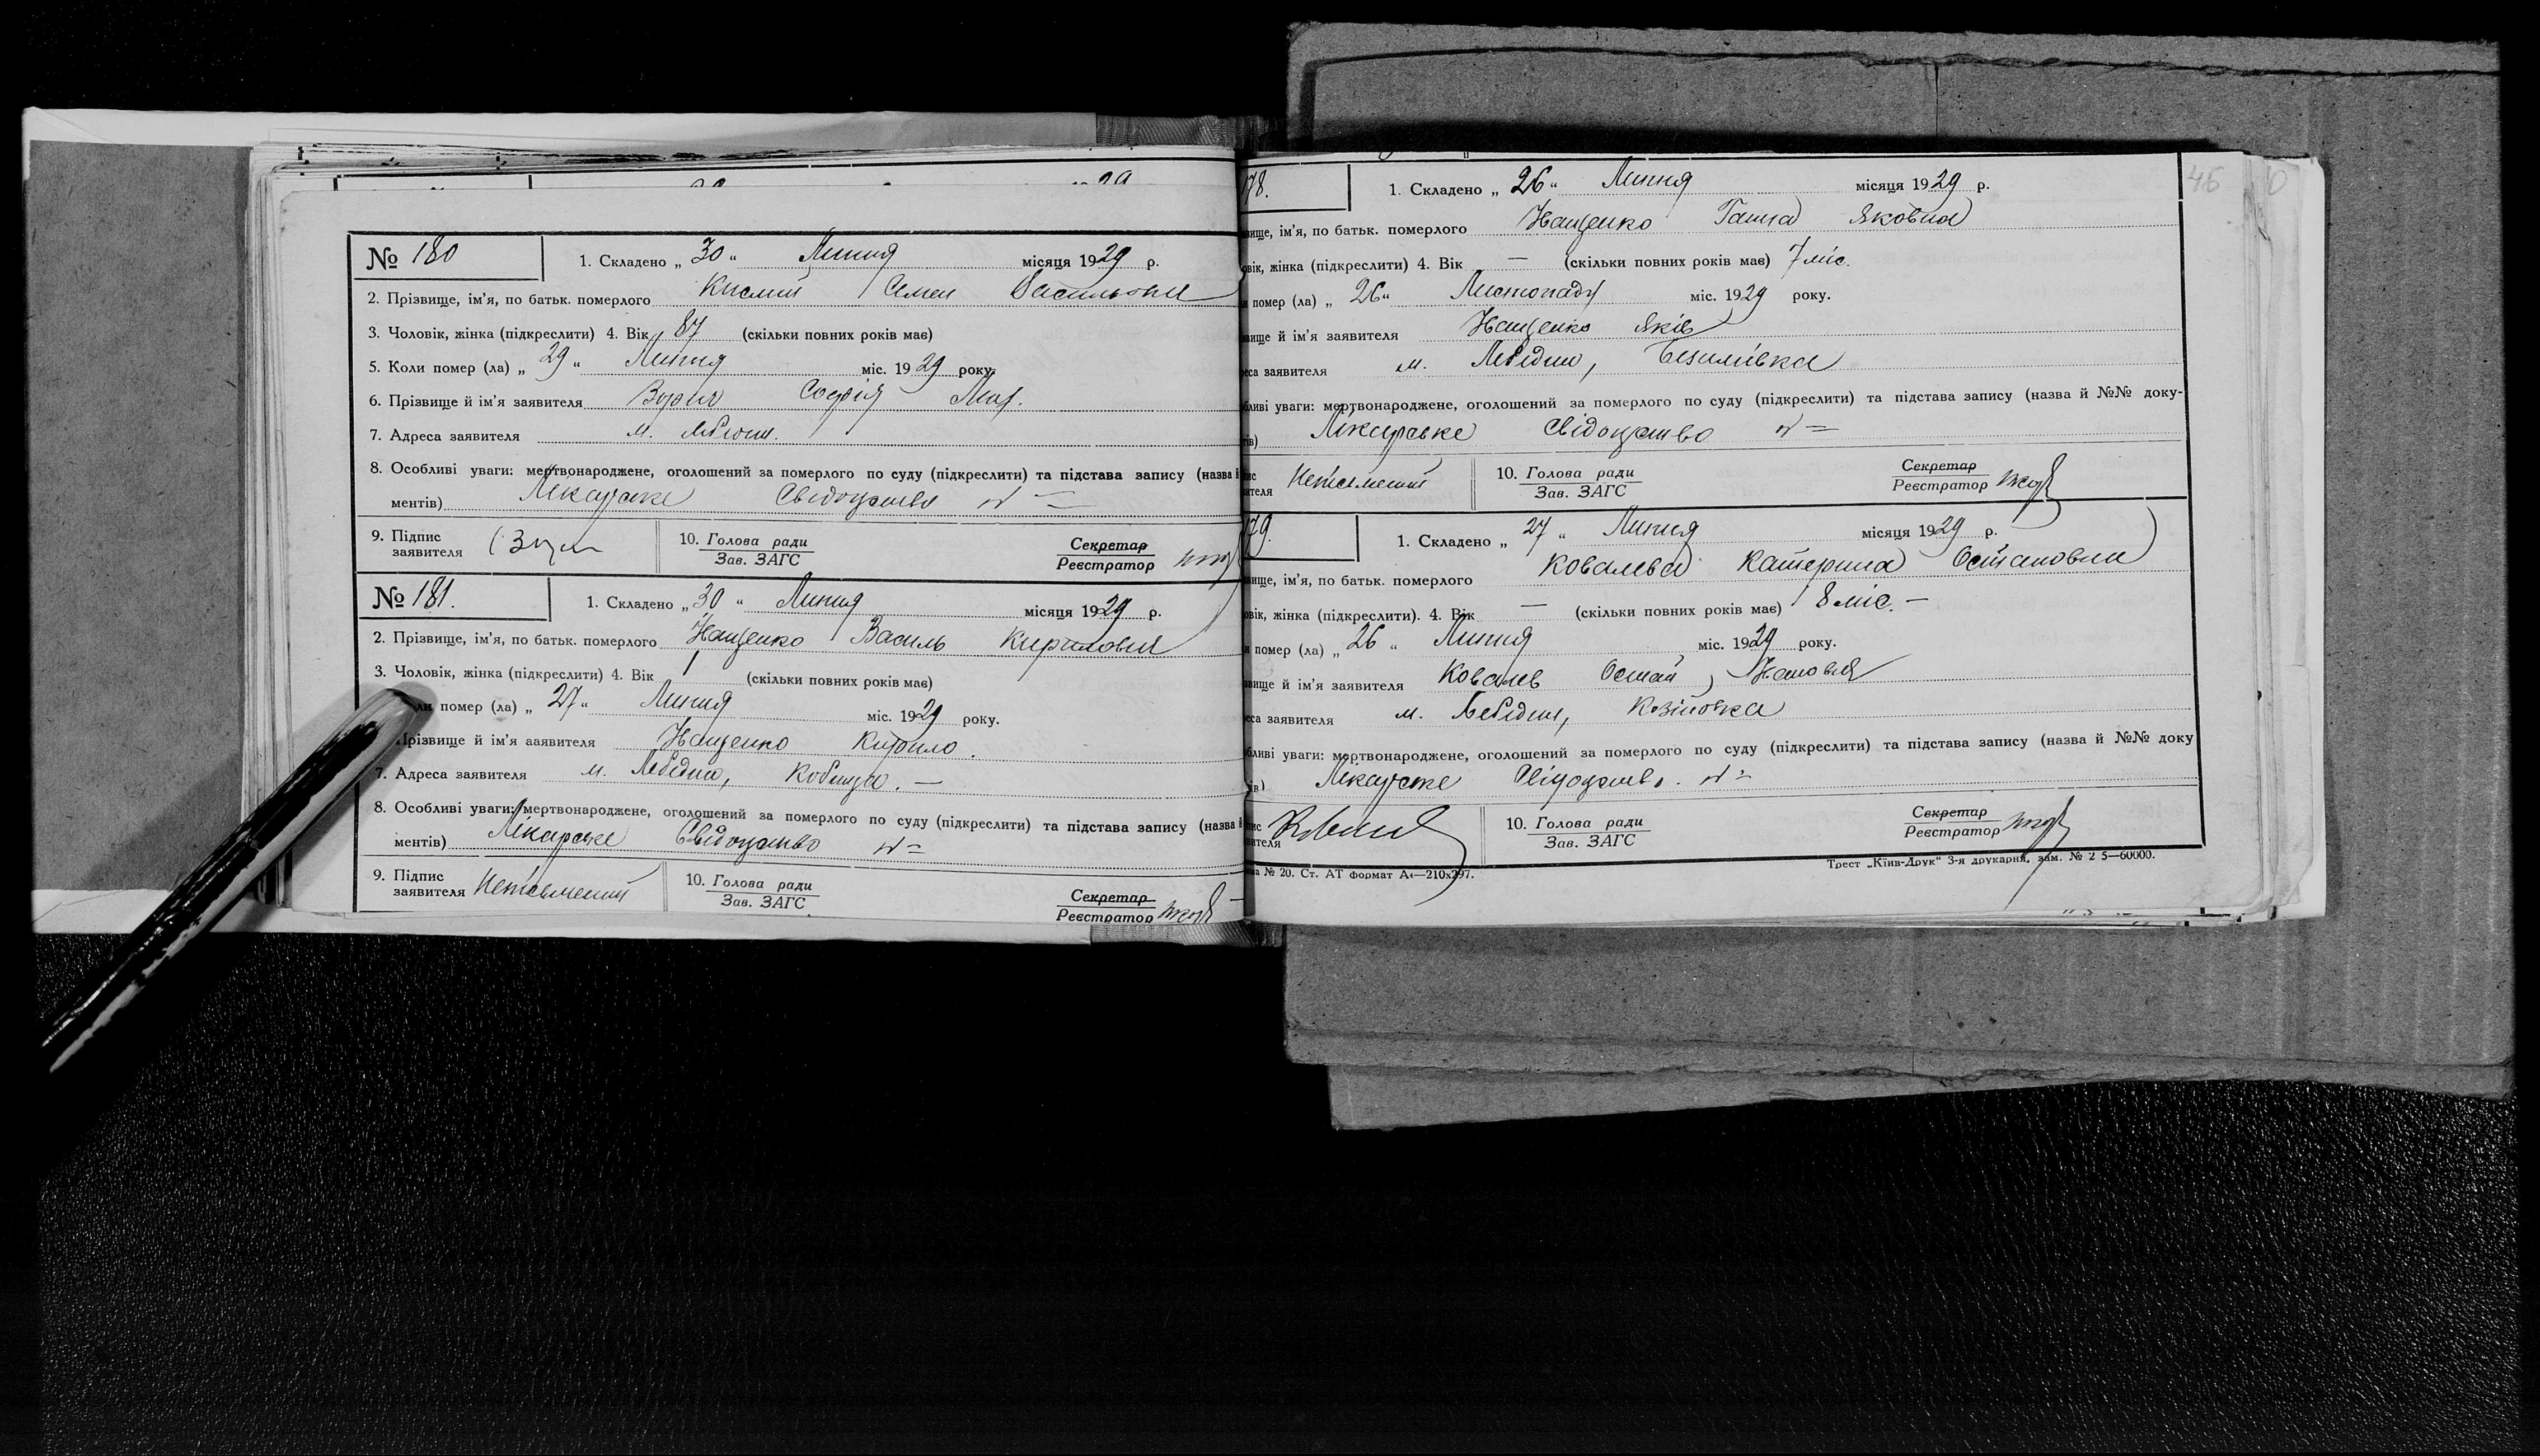 № 180
1. Складено „ 30 “ Липня місяця 1929 р.
2. Прізвище, ім'я, по батьк. померлого Кислий Семен
3. Чоловік, жінка (підкреслити) 4. Вік 87 (скільки повних років має)
5. Коли помер (ла) „ 29 “ Липня міс. 1929 року.
6. Прізвище й ім'я заявителя Софія
7. Адреса заявителя м. Лебедин.
8. Особливі уваги: мертвонароджене, оголошений за померлого по суду (підкреслити) та підстава запису (назва й
ментів) Лікарське Свідоцтво № =
9. Підпис заявителя
10. Голова ради
Зав. ЗАГС
Секретар
Реєстратор
№ 181.
1. Складено „ 30 “ Липня місяця 1929 р.
2. Прізвище, ім'я, по батьк. померлого Нащенко Василь Кирилович
3. Чоловік, жінка (підкреслити) 4. Вік 1 (скільки повних років має)
помер (ла) „ 27 “ Липня міс. 1929 року.
Прізвище й ім'я заявителя Нащенко Кирило.
7. Адреса заявителя м. Лебедин, Кобижа. —
8. Особливі уваги: мертвонароджене, оголошений за померлого по суду (підкреслити) та підстава запису (назва й
ментів) Лікарське Свідоцтво № =
9. Підпис заявителя Неписьмений
10. Голова ради
Зав. ЗАГС
Секретар
Реєстратор
78.
1. Складено „ 26 “ Липня місяця 1929 р.
вище, ім'я, по батьк. померлого Нащенко Ганна Яковна
овік, жінка (підкреслити) 4. Вік — (скільки повних років має) 7 міс.
и помер (ла) „ 26 “ Листопаду міс. 1929 року.
вище й ім'я заявителя Нащенко Яків
еса заявителя м. Лебедин,
бливі уваги: мертвонароджене, оголошений за померлого по суду (підкреслити) та підстава запису (назва й №№ доку-
тів) Лікарське Свідоцтво № =
пис
вителя Неписьмений
10. Голова ради
Зав. ЗАГС
Секретар
Реєстратор
79.
1. Складено „ 27 “ Липня місяця 1929 р.
вище, ім'я, по батьк. померлого Ковалева Катерина Остаповна
овік, жінка (підкреслити). 4. Вік — (скільки повних років має) 8 міс. —
и помер (ла) „ 26 “ Липня міс. 1929 року.
вище й ім'я заявителя Ковалев Остап
еса заявителя м. Лебедин,
бливі уваги: мертвонароджене, оголошений за померлого по суду (підкреслити) та підстава запису (назва й №№ доку
ів) Лікарське Свідоцтво. № =
пис
вителя
10. Голова ради
Зав. ЗАГС
Секретар
Реєстратор
ма № 20. Ст. АТ формат А₄—210х297.
Трест „Київ-Друк“ 3-я друкарня, зам. № 2 5—60000.